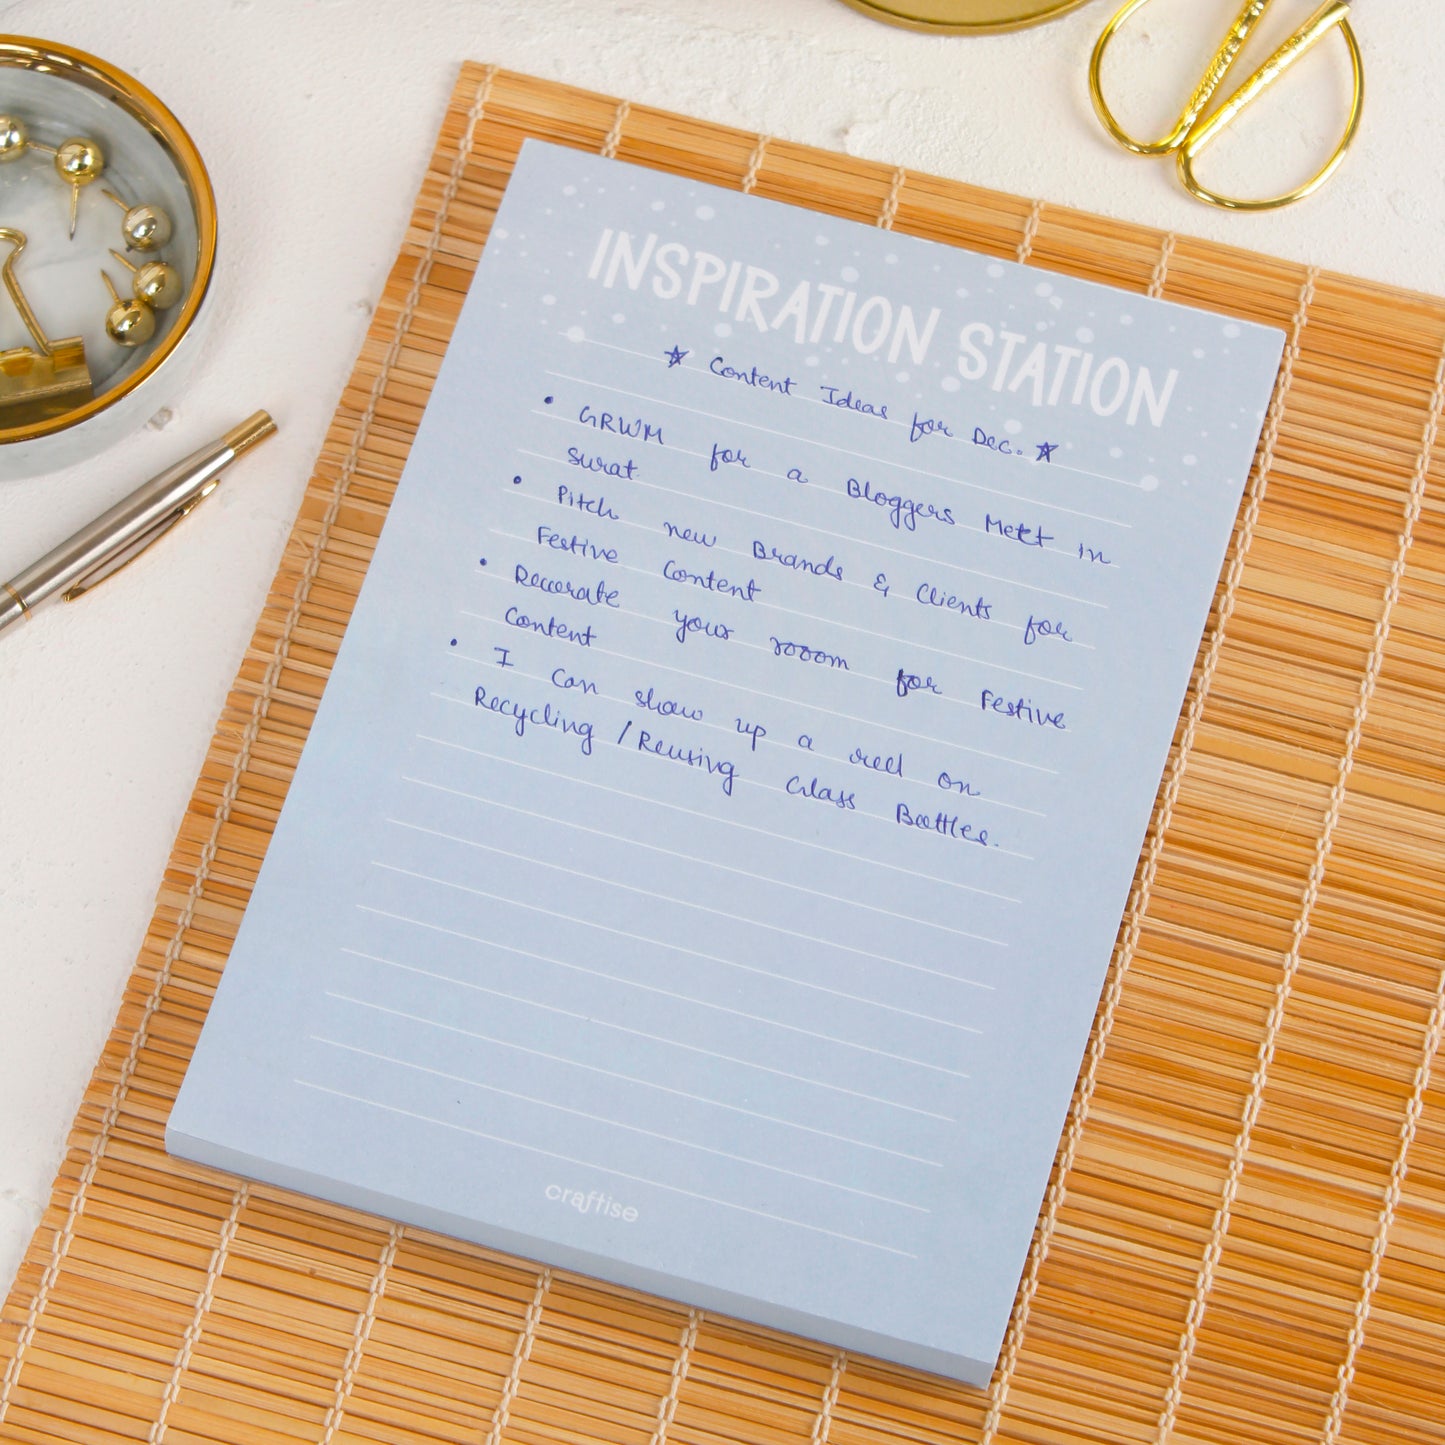 INSPIRATION STATION
☆ Content Ideas for Dec. ☆
• GRWM for a Bloggers Meet in
surat.
• Pitch new Brands & Clients for
Festive Content
• Decorate your rooom for Festive
Content
• I can show up a reel on
Recycling / Reusing Glass Bottles.
craftise